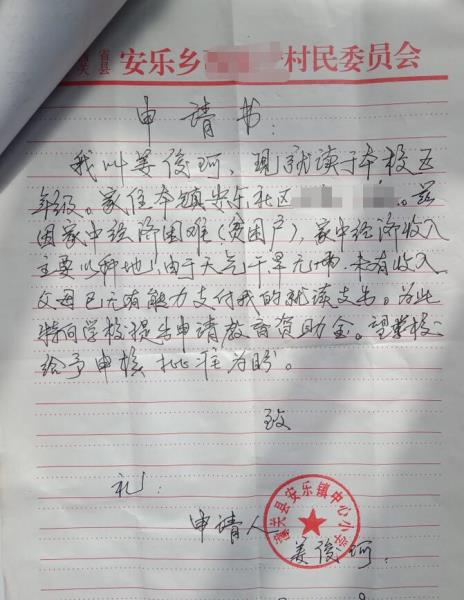 省县
关
安乐乡 村民委员会
申请书:
我叫姜俊珂,现就读于本校五
年级。家住本镇安乐社区 。兹
因家中经济困难(贫困户),家中经济收入
主要以种地,由于天气干旱无雨,未有收入
父母已无有能力支付我的就读支出。为此
特向学校提出申请教育资助金。望学校
给予审核批准为盼。
致
礼:
申请人
姜俊珂.
潼关县安乐镇中心小学